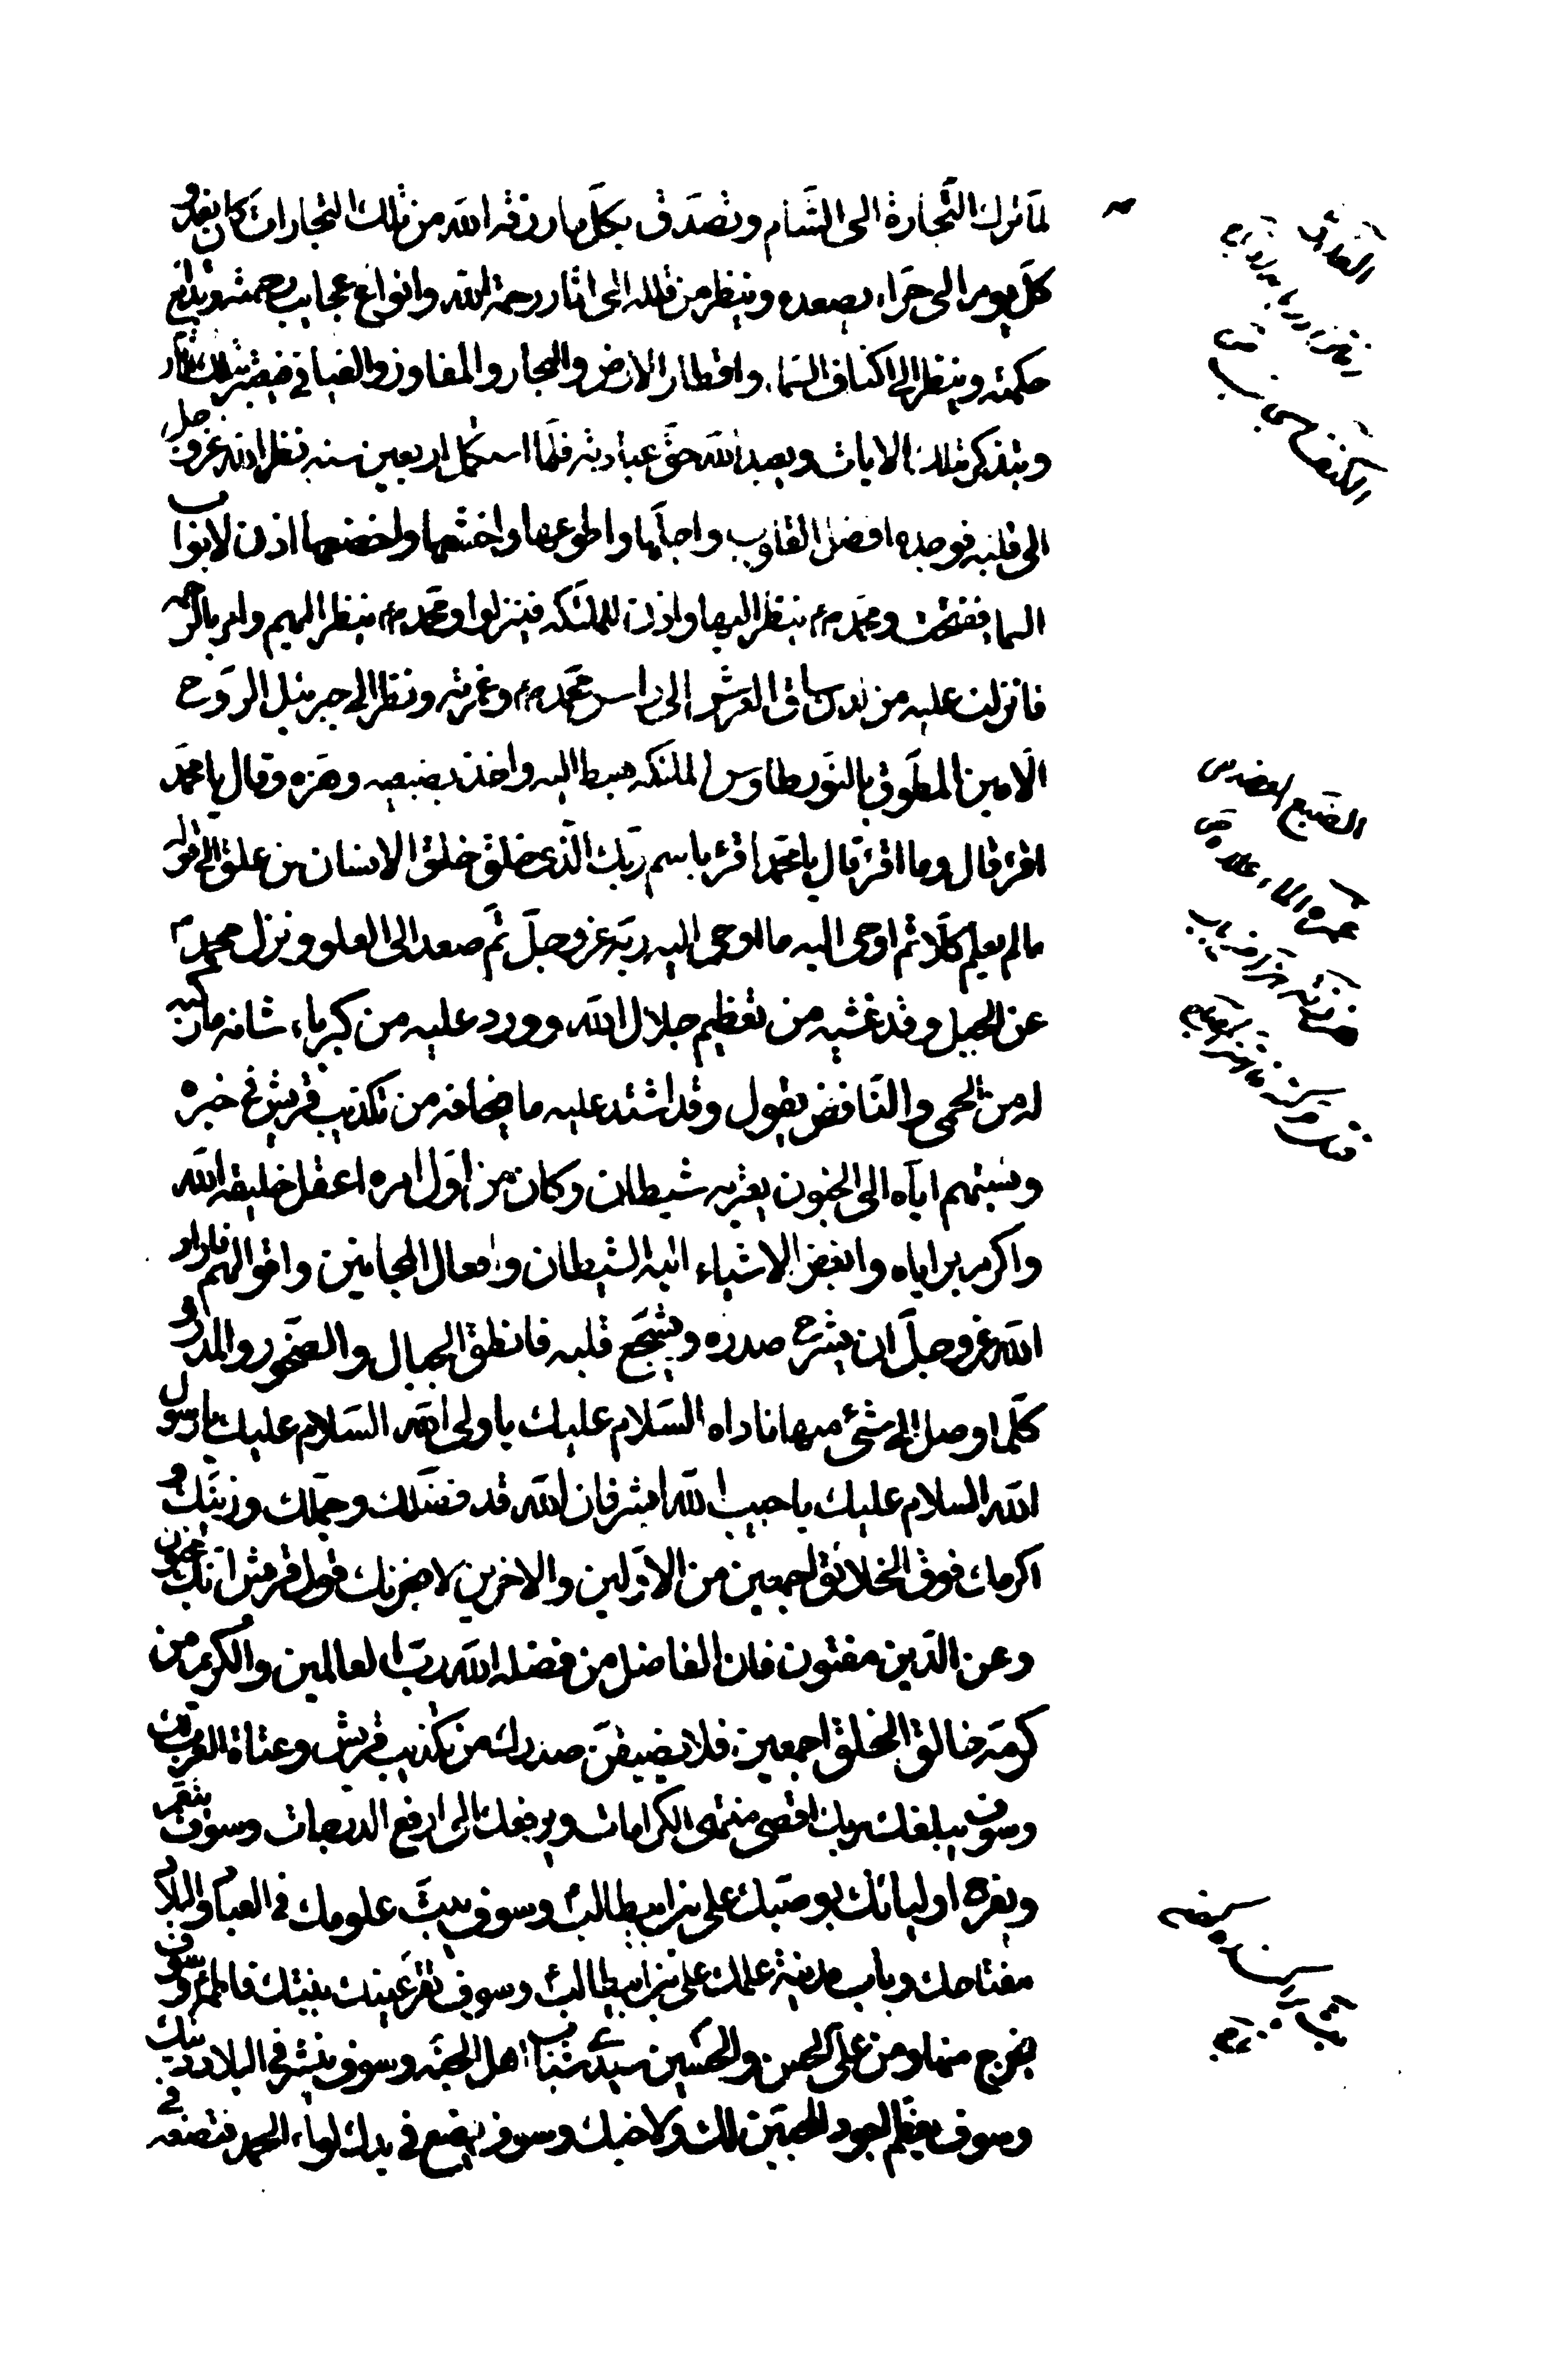 لمّا ترك التّجارة الى الشّام وتصدّق بكلّ ما رزقه الله من تلك التجارات كان يغدو
كلّ يوم الى حرّاء يصعده وينظر من قلله الى اثار رحمة الله وانواع عجايب رحمته وبدايع
حكمته وينظر الى اكناف السّماء واقطار الارض والبحار والمفاوز والفيافى فيعتبر بتلك الاثار
ويتذكر بتلك الايات ويعبد الله حقّ عبادته فلمّا استكمل اربعين سنه نظر الله عز وجل
الى قلبه فوجده افضل القلوب واجلّها واطوعها واخشعها واخضعها اذن لابواب
السما ففتحت ومحمّد ص ينظر اليها واذن للملئكه فينزلوا ومحمّد ص ينظر اليهم وامر بالرحمه
فانزلت عليه من لدن ساق العرش الى راس محمّد ص وغرته ونظر الى جبرئيل الروّح
الامين المطوّق بالنوّر طاوس الملئكه هبط اليه واخذ بضبعيه وهزه وقال يا محمّد
اقرء قال وما اقرء قال يا محمّد اقرء باسم ربّك الّذى خلق خلق الانسان من علق الى قوله
ما لم يعلم كلّا ثم اوحى اليه ما اوحى اليه ربّه عز وجلّ ثمّ صعد الى العلو ونزل محمد ص
عن الجبل وقد غشيه من تعظيم جلال الله وورد عليه من كبرياء شانه ما ركبه
له من الحمى والنّافض يقول وقد اشتد عليه ما يخافه من تكذيب قريش فى خبره
ونسبتهم ايّاه الى الجنون يعتريه شيطان وكان من اوّل امره اعقل خليقه الله
واكرم براياه وابغض الاشياء اليه الشيطان وافعال المجانين واقوالهم فاراد
الله عز وجلّ ان يشرح صدره ويشجّع قلبه فانطق الجبال والصّخور والمدر و
كلّما وصل الى شئ منها ناداه السّلام عليك يا ولى الله السّلام عليك يا رسول
الله السلام عليك يا حبيب الله ابشر فان الله قد فضّلك وجمّلك وزيّنك و
اكرمك فوق الخلائق اجمعين من الاوّلين والاخرين لا يحزنك قول قريش انّك مجنون
وعن الدّين مفتون فان الفاضل من فضله الله ربّ العالمين والكريم من
كرّمه خالق الخلق اجمعين فلا يضيقنّ صدرك من تكذيب قريش وعتاة العرب لك
وسوف يبلغك ربك اقصى منتهى الكرامات ويرفعك الى ارفع الدرجات وسوف ينعّم
ويفرح اوليائك بوصيّك على بن ابيطالب وسوف يبثّ علومك فى العباد والبلاد
مفتاحك وباب مدينة علمك على بن ابيطالب وسوف تقرّ عينك ببنتك فاطمه وسوف
يخرج منها ومن على الحسن والحسين سيدى شباب اهل الجنّه وسوف ينشر فى البلاد دينك
وسوف يعظّم اجور المحبّين لك ولاخيك وسوف يضع فى يدك لواء الحمد فتضعه فى
الضبع العضد ص